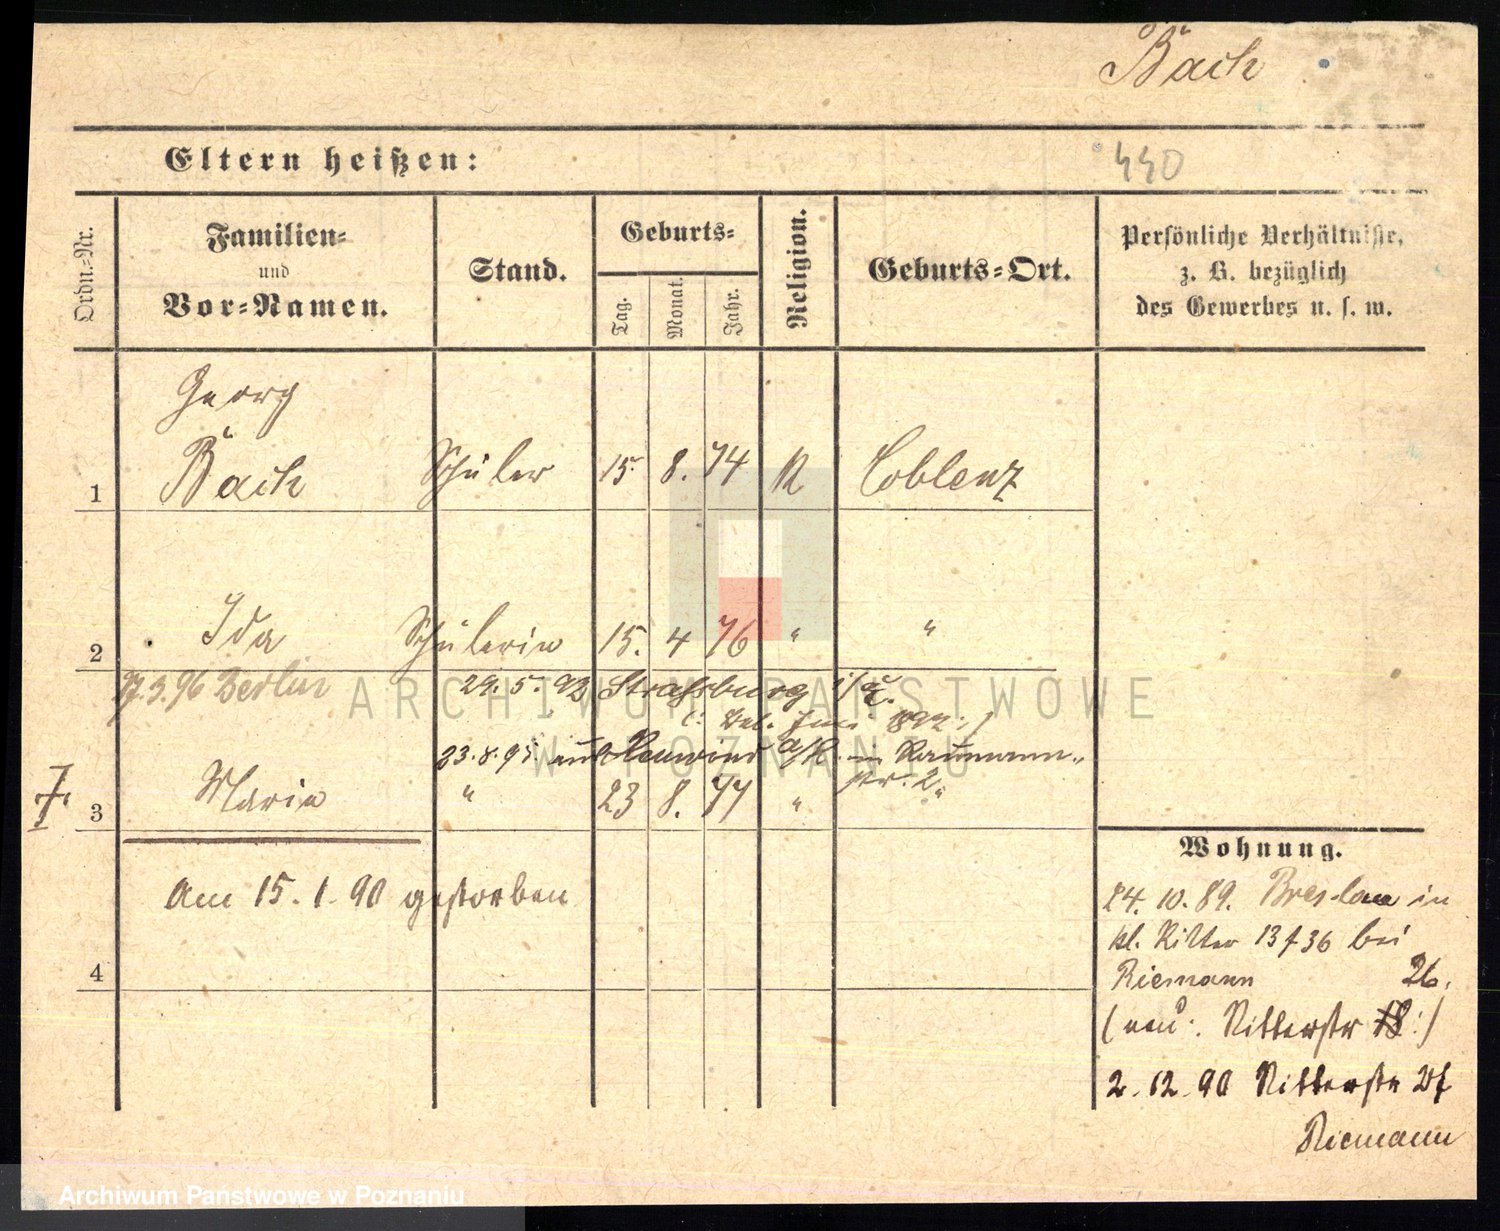 Bach
Eltern heißen:
440
Ordn.-Nr.
Familien-
und
Vor-Namen.
Stand.
Geburts-
Tag.
Monat.
Jahr.
Religion.
Geburts-Ort.
Persönliche Verhältnisse,
z. B. bezüglich
des Gewerbes u. s. w.
Georg
1 Bach Schüler 15. 8. 74 K Coblenz
2 Ida Schülerin 15. 4 76 " "
27.3.96 Berlin 29. 5. 92 Strassburg i/E.
23.8.95 aus Neuwied a/R. in Naumann-
str. 2.
3 Marie " 23 8. 77 "
Am 15. 1. 90 gestorben
4
Wohnung.
24. 10. 89. Breslau in
kl. Ritter 13 f 36 bei
Riemann 26.
(neu: Ritterstr 18:)
2. 12. 90 Ritterstr
Riemann
ARCHIWUM PAŃSTWOWE
W POZNANIU
Archiwum Państwowe w Poznaniu